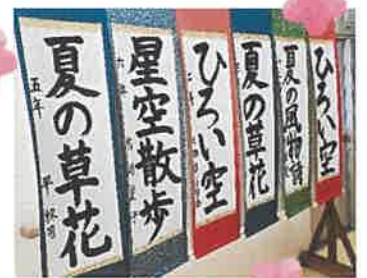 夏の草花
五年
星空散歩
ひろい空
夏の草花
夏の風物詩
ひろい空